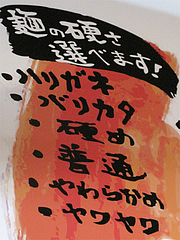 麺の硬さ
選べます!
・ハリガネ
・バリカタ
・硬め
・普通
・やわらかめ
・ヤワヤワ